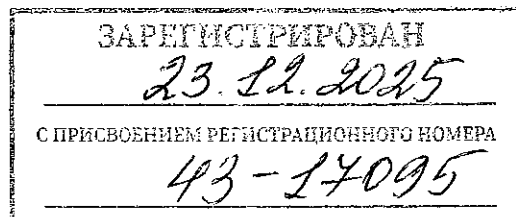 ЗАРЕГИСТРИРОВАН
23.12.2025
С ПРИСВОЕНИЕМ РЕГИСТРАЦИОННОГО НОМЕРА
43-17095